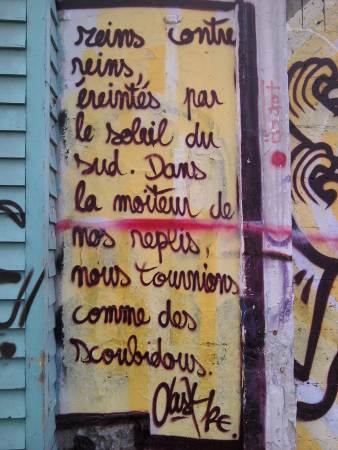 reins contre
reins,
éreintés par
le soleil du
sud. Dans
la moiteur de
nos replis,
nous tournions
comme des
scoubidous.